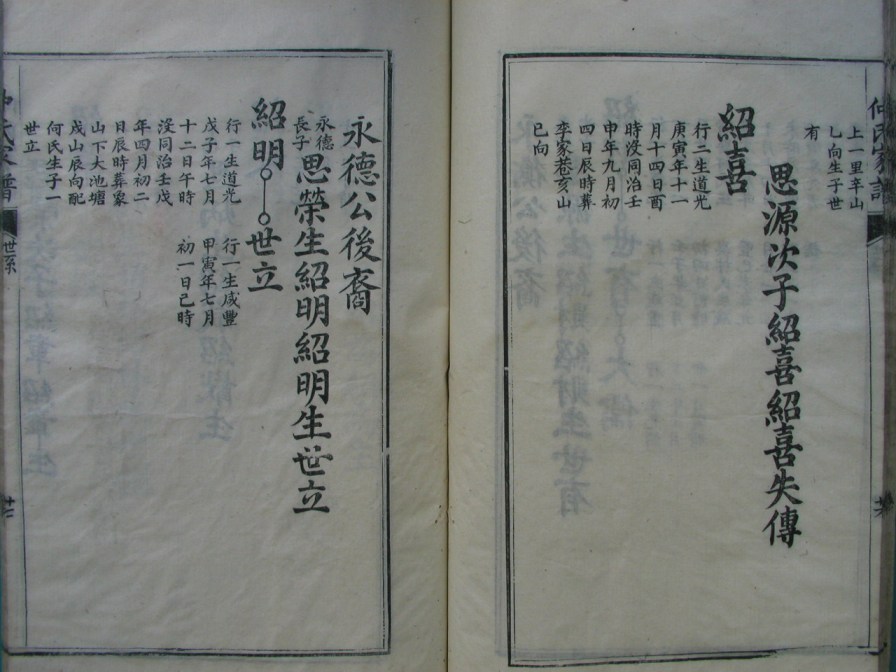 氏家譜
上一里辛山
乙向生子世
有
思源次子紹喜紹喜失傳
紹喜
行二生道光
庚寅年十一
月十四日酉
時没同治壬
申年九月初
四日辰時葬
李家巷亥山
巳向
永德公後裔
永德長子思榮生紹明紹明生世立
紹明 世立
行一生道光
戊子年七月
十二日午時
没同治壬戌
年四月初二
日辰時葬象
山下大池塘
戌山辰向配
何氏生子一
世立
行一生咸豐
甲寅年七月
初一日巳時
氏家譜
世系
廿七